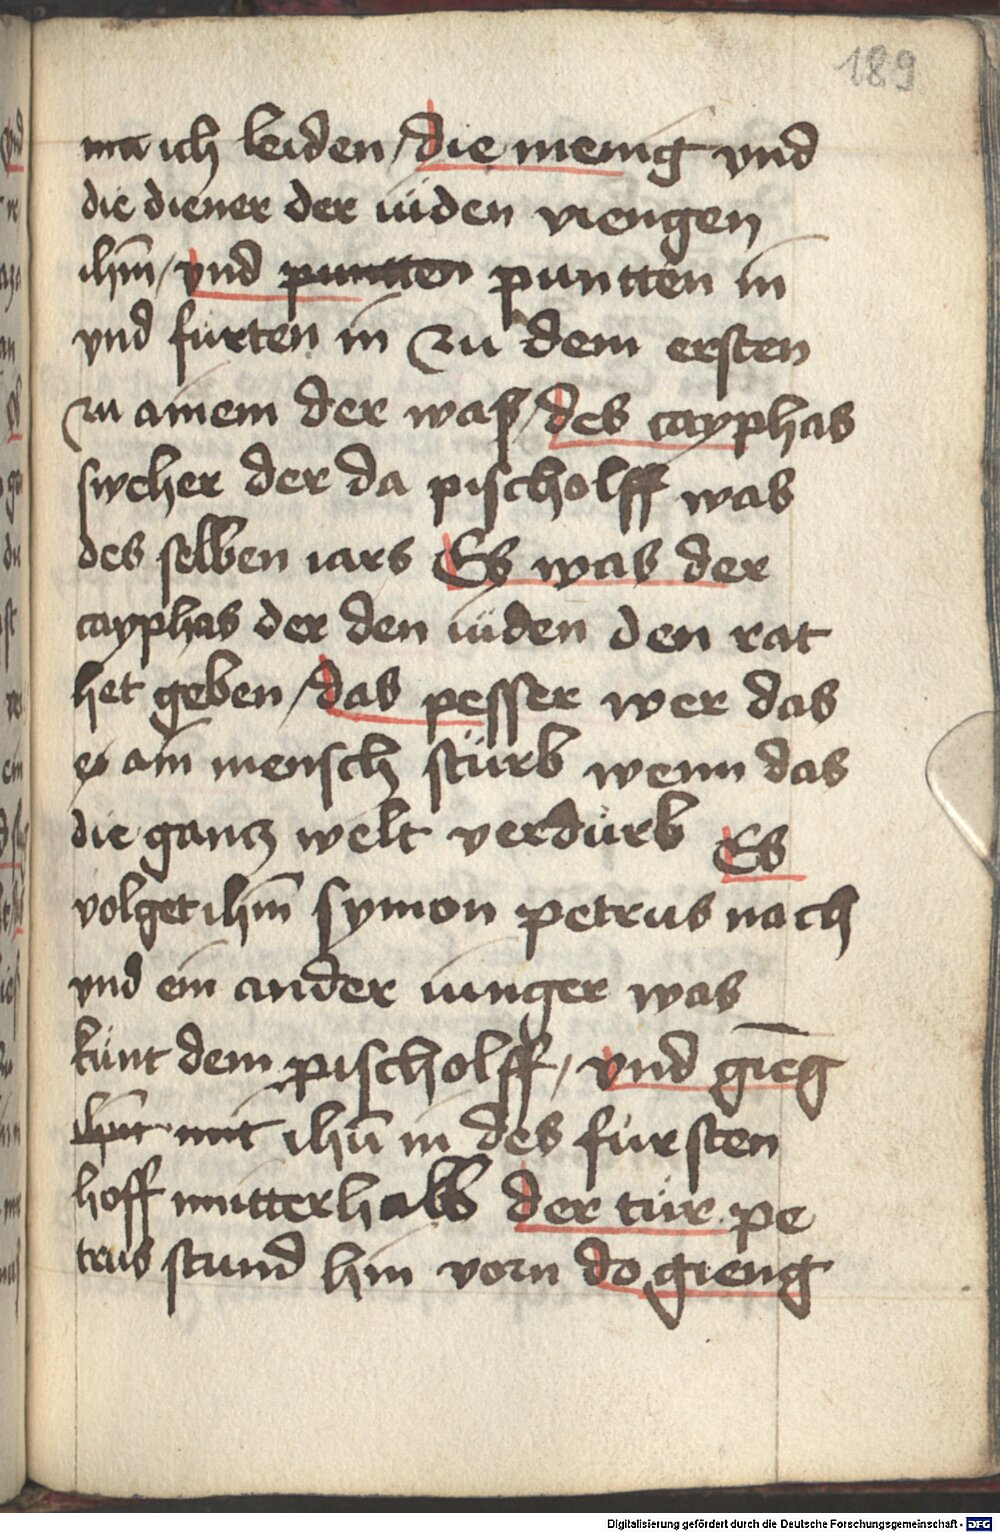 189
ich leiden / die menig vnd
die diener der iüden viengen
ihm̄ / vnd puntten puntten in
vnd fürten in zu dem ersten
zu ainem der was / des cayphas
sweher der da pischolff was
des selben iars Es was der
cayphas der den iüden den rat
het geben / das pesser wer das
ain mensch stürb wenn das
die gancz welt verdürb Es
volget ihm̄ symon petrus nach
vnd ein ander iunger was
künt dem pischolff / vnd gieng
mit ihū in des fürsten
hoff mitterhalb der tür pe
trus stund hin vorn do gieng
Digitalisierung gefördert durch die Deutsche Forschungsgemeinschaft - DFG